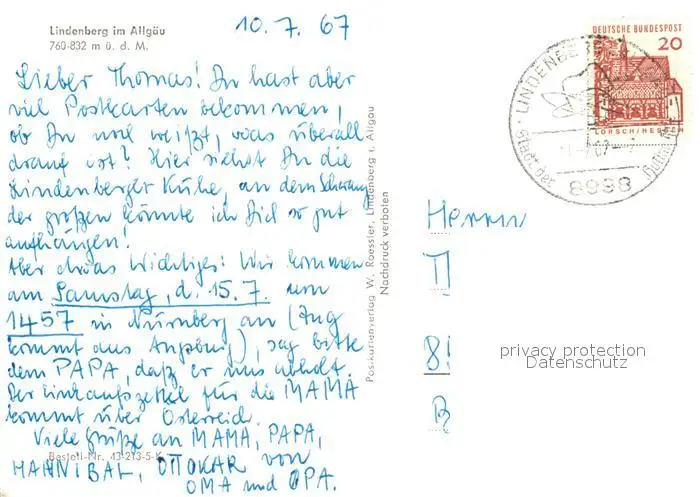 Lindenberg im Allgäu
760-832 m ü. d. M.
10.7.67
Lieber Thomas! Du hast aber
viel Postkarten bekommen,
ob Du noch weißt, was überall
drauf ist? Hier siehst Du die
Lindenberger Kühe, an dem Schwanz
der großen könnte ich Dich so gut
aufhängen!
Aber etwas Wichtiges: Wir kommen
am Samstag, d. 15.7. um
1457 in Nürnberg an (Zug
kommt aus Augsburg), sag bitte
dem PAPA, daß er uns abholt.
Der Einkaufszettel für die MAMA
kommt über Österreich.
Viele Grüße an MAMA, PAPA,
Bestell-Nr. 43-213-5-K
HANNIBAL, OTTOKAR von
OMA und OPA.
Postkartenverlag W. Roessler, Lindenberg i. Allgäu
Nachdruck verboten
DEUTSCHE BUNDESPOST
20
LORSCH/HESSEN
8998
Herrn
8
privacy protection
Datenschutz